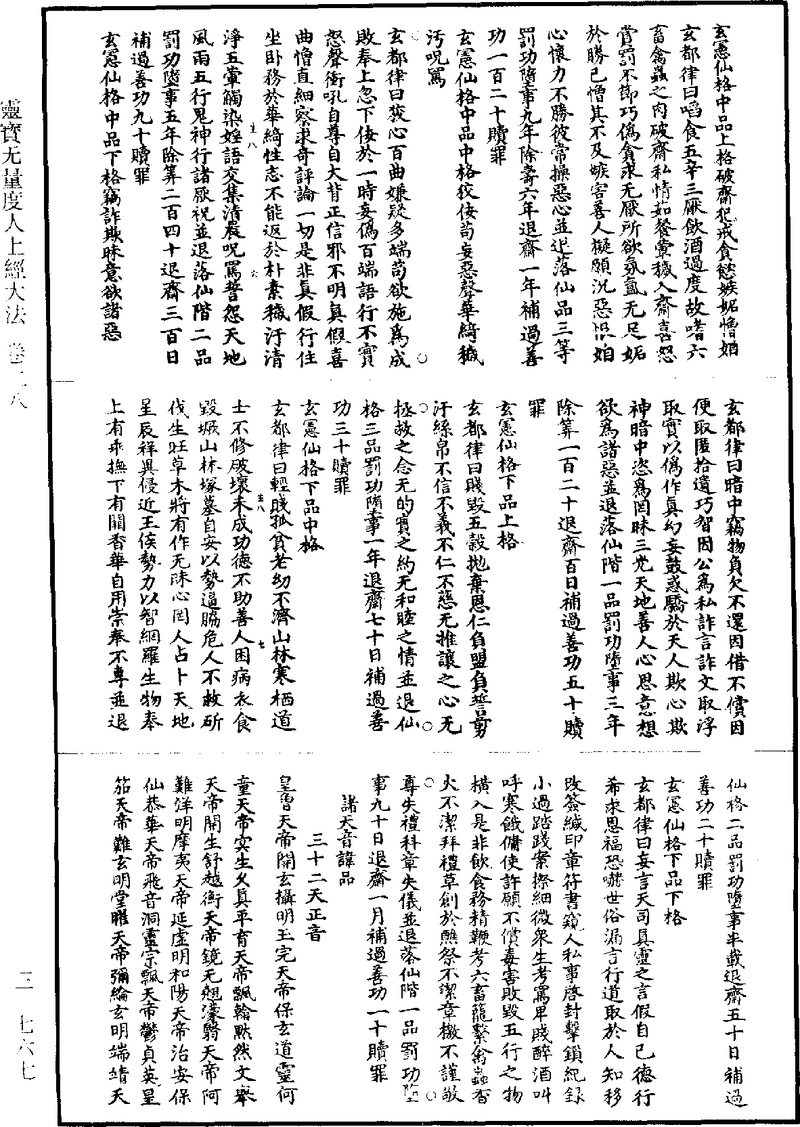 玄憲仙格中品上格破齋犯戒貪慾嫉妬憎媢
玄都律曰啗食五辛三厭飲酒過度故嗜六
畜禽蟲之肉破齋私情茹餐葷穢入齋喜怒
賞罰不節巧偽貪求无厭所欲氛氳无足妬
於勝己憎其不及嫉害善人擬願沉惡恨媢
心懷力不勝彼常操惡心並退落仙品三等
罰功隨事九年除壽六年退齋一年補過善
功一百二十贖罪
玄憲仙格中品中格佼佞苟妄惡聲華綺穢
污呪罵
玄都律曰狡心百曲嫌疑多端苟欲施為成
敗奉上忽下佞於一時妄偽百端語行不實
怒聲衝吼自尊自大背正信邪不明真假喜
曲憎直細察求奇評論一切是非真假行住
坐卧務於華綺性志不能返於朴素穢汙清
淨五葷觸染婬語交集清晨呪罵誓怨天地
風雨五行鬼神行諸厭祝並退落仙階二品
罰功墮事五年除筭二百四十退齋三百日
補過善功九十贖罪
玄憲仙格中品下格竊詐欺昧意欲諸惡
玄都律曰暗中竊物負欠不還因借不償因
便取匿拾遺巧智因公為私詐言詐文取浮
取實以偽作真幻妄鼓惑驕於天人欺心欺
神暗中恣為罔昧三光天地善人心思意想
欲為諸惡並退落仙階一品罰功墮事三年
除筭一百二十退齋百日補過善功五十贖
罪
玄憲仙格下品上格
玄都律曰賤毀五穀拋棄恩仁負盟負誓剪
汙絲帛不信不義不仁不慈无推讓之心无
拯救之念无的實之約无和睦之情並退仙
格三品罰功隨事一年退齋七十日補過善
功三十贖罪
玄憲仙格下品中格
玄都律曰輕賤孤貪老幼不濟山林寒栖道
士不修破壞未成功德不助善人困病衣食
毀撅山林塚墓自安以勢逼脇危人不救斫
伐生旺草木將有作无昧心罔人占卜天地
星辰祥異侵近王侯勢力以智網羅生物奉
上有乖撫下有閑香華自用崇奉不尊並退
仙格二品罰功墮事半載退齋五十日補過
善功二十贖罪
玄憲仙格下品下格
玄都律曰妄言天司真靈之言假自己德行
希求恩福恐嚇世俗漏言行道取於人知移
改簽緘印章符書窺人私事啓封擊鎖紀録
小過踏踐案擦細微衆生考罵卑賤醉酒叫
呼寒餓傭使許願不償毒害敗毀五行之物
橫入是非飲食務精鞭考六畜籠繫禽蟲香
火不潔拜禮草創於醮祭不潔章檄不謹敬
尊失禮科章失儀並退落仙階一品罰功墮
事九十日退齋一月補過善功一十贖罪
諸天音諱品
三十二天正音
皇曾天帝開玄攝明玉完天帝保玄道靈何
童天帝实生父真平育天帝飄翰黙然文舉
天帝開生舒越衡天帝鏡无翹濛翳天帝阿
難洋明摩夷天帝延虛明和陽天帝治安保
仙恭華天帝飛音洞靈宗飄天帝鬱貞英呈
笳天帝難玄明堂曜天帝彌綸玄明端靖天
靈寶无量度人上經大法 卷二八
三 七六七